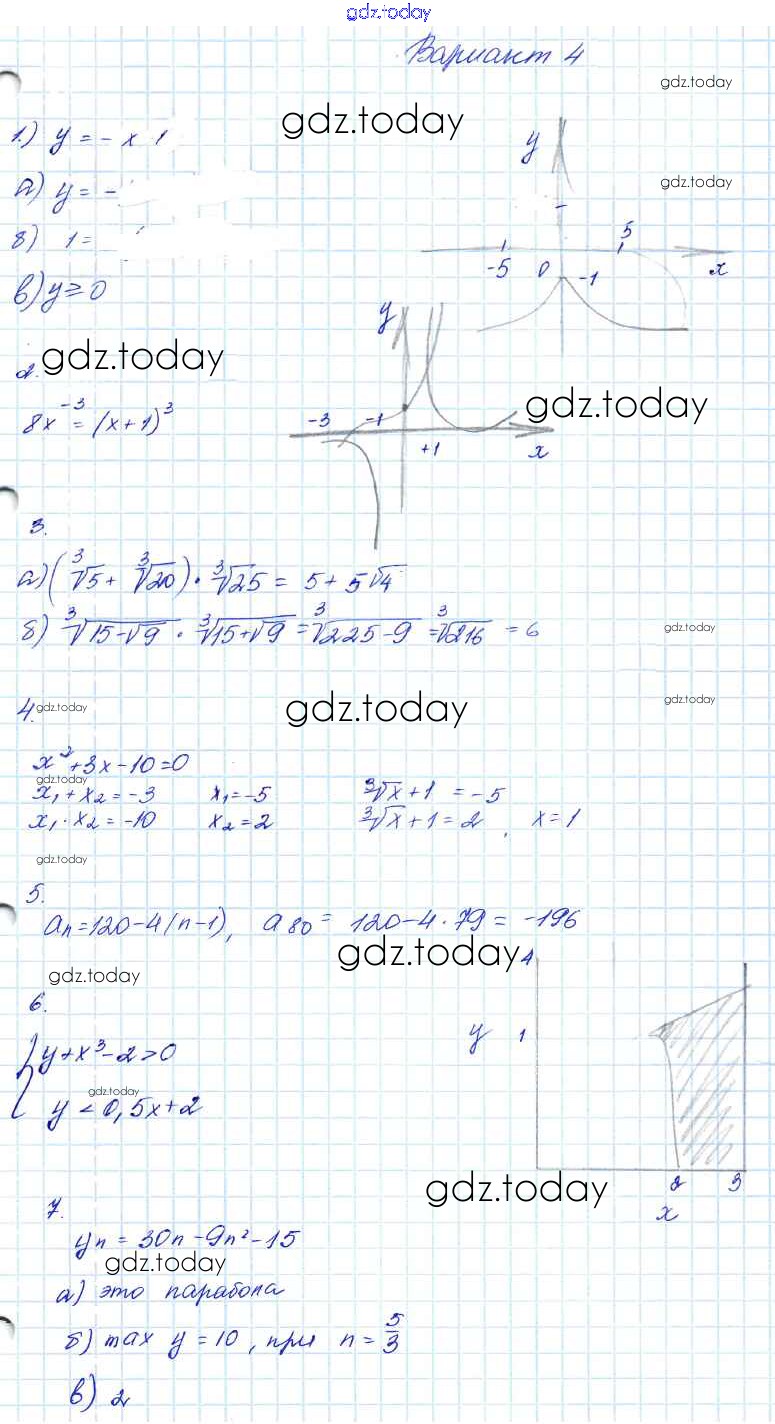 gdz.today
Вариант 4
gdz.today
1.) y = - x 1
gdz.today
y
а) y = -
gdz.today
б) 1 =
5
-5 0 -1 x
в) y ≥ 0
y
gdz.today
2.
8x⁻³ = (x+1)³
gdz.today
-3 -1
+1 x
3.
а) (∛5 + ∛20) · ∛25 = 5 + 5∛4
б) ∛(15-√9) · ∛(15+√9) = ∛(225-9) = ∛216 = 6
gdz.today
gdz.today
4. gdz.today
gdz.today
x²+3x-10=0
gdz.today
x₁+x₂=-3 x₁=-5 ∛x+1 = -5
x₁·x₂=-10 x₂=2 ∛x+1=2, x=1
gdz.today
5.
aₙ=120-4(n-1), a₈₀= 120-4·79= -196
gdz.today
4
gdz.today
6.
y 1
{ y+x³-2>0
gdz.today
y < 0,5x+2
gdz.today
2 3
x
7.
yₙ = 30n-9n²-15
gdz.today
а) это парабола
б) max y = 10, при n = 5/3
в) 2